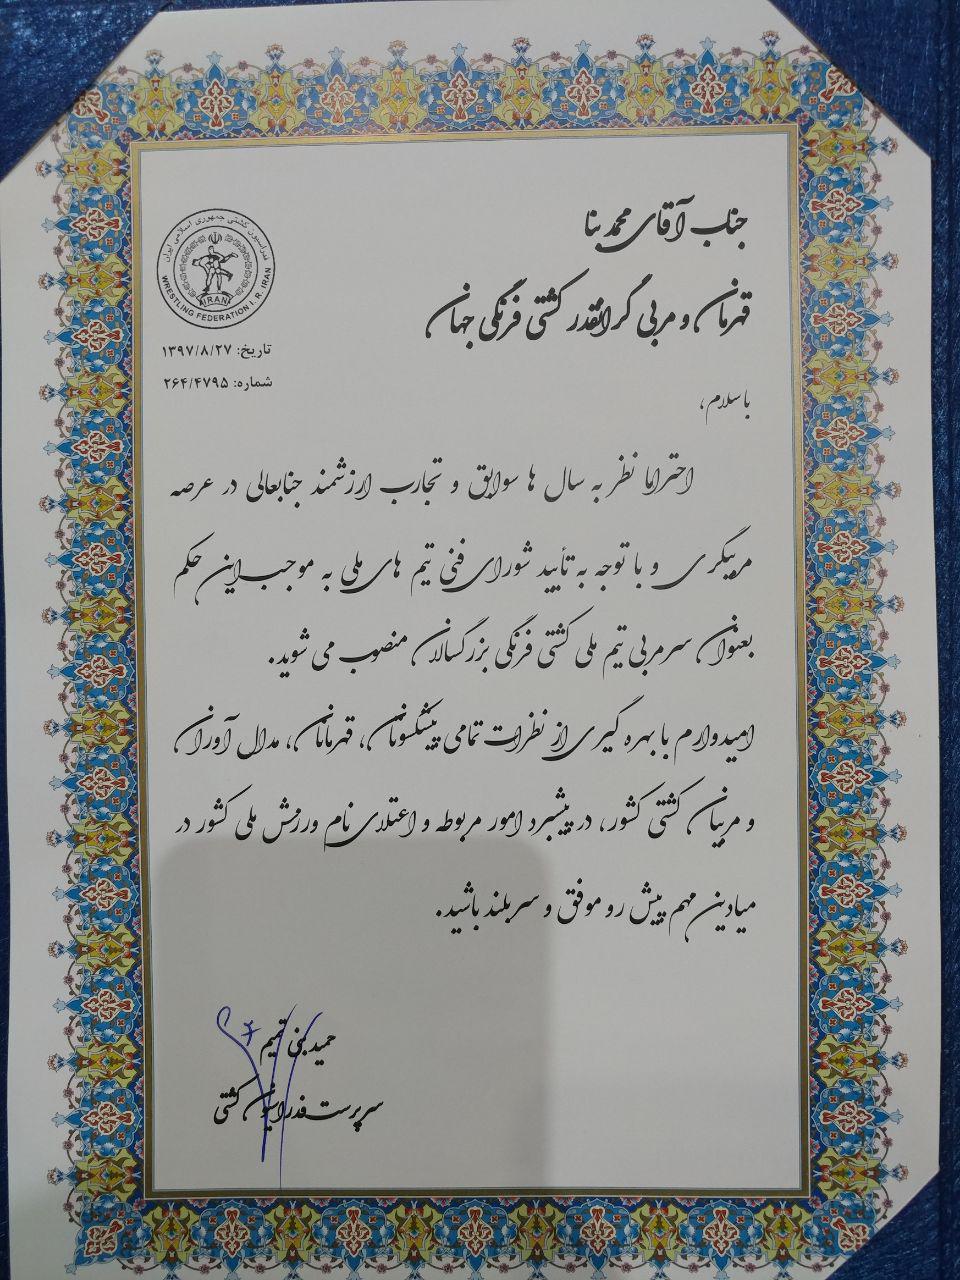 جناب آقای محمد بنا
قهرمان و مربی گرانقدر کشتی فرنگی جهان
فدراسیون کشتی جمهوری اسلامی ایران
IRAN
WRESTLING FEDERATION I. R. IRAN
تاریخ: ۱۳۹۷/۸/۲۷
شماره: ۲۶۴/۴۷۹۵
با سلام،
احتراما نظر به سال ها سوابق و تجارب ارزشمند جنابعالی در عرصه
مربیگری و با توجه به تأیید شورای فنی تیم های ملی به موجب این حکم
بعنوان سرمربی تیم ملی کشتی فرنگی بزرگسالان منصوب می شوید.
امیدوارم با بهره گیری از نظرات تمامی پیشکسوتان، قهرمانان، مدال آوران
و مربیان کشتی کشور، در پیشبرد امور مربوطه و اعتلای نام ورزش ملی کشور در
میادین مهم پیش رو موفق و سربلند باشید.
حمید بنی تمیم
سرپرست فدراسیون کشتی